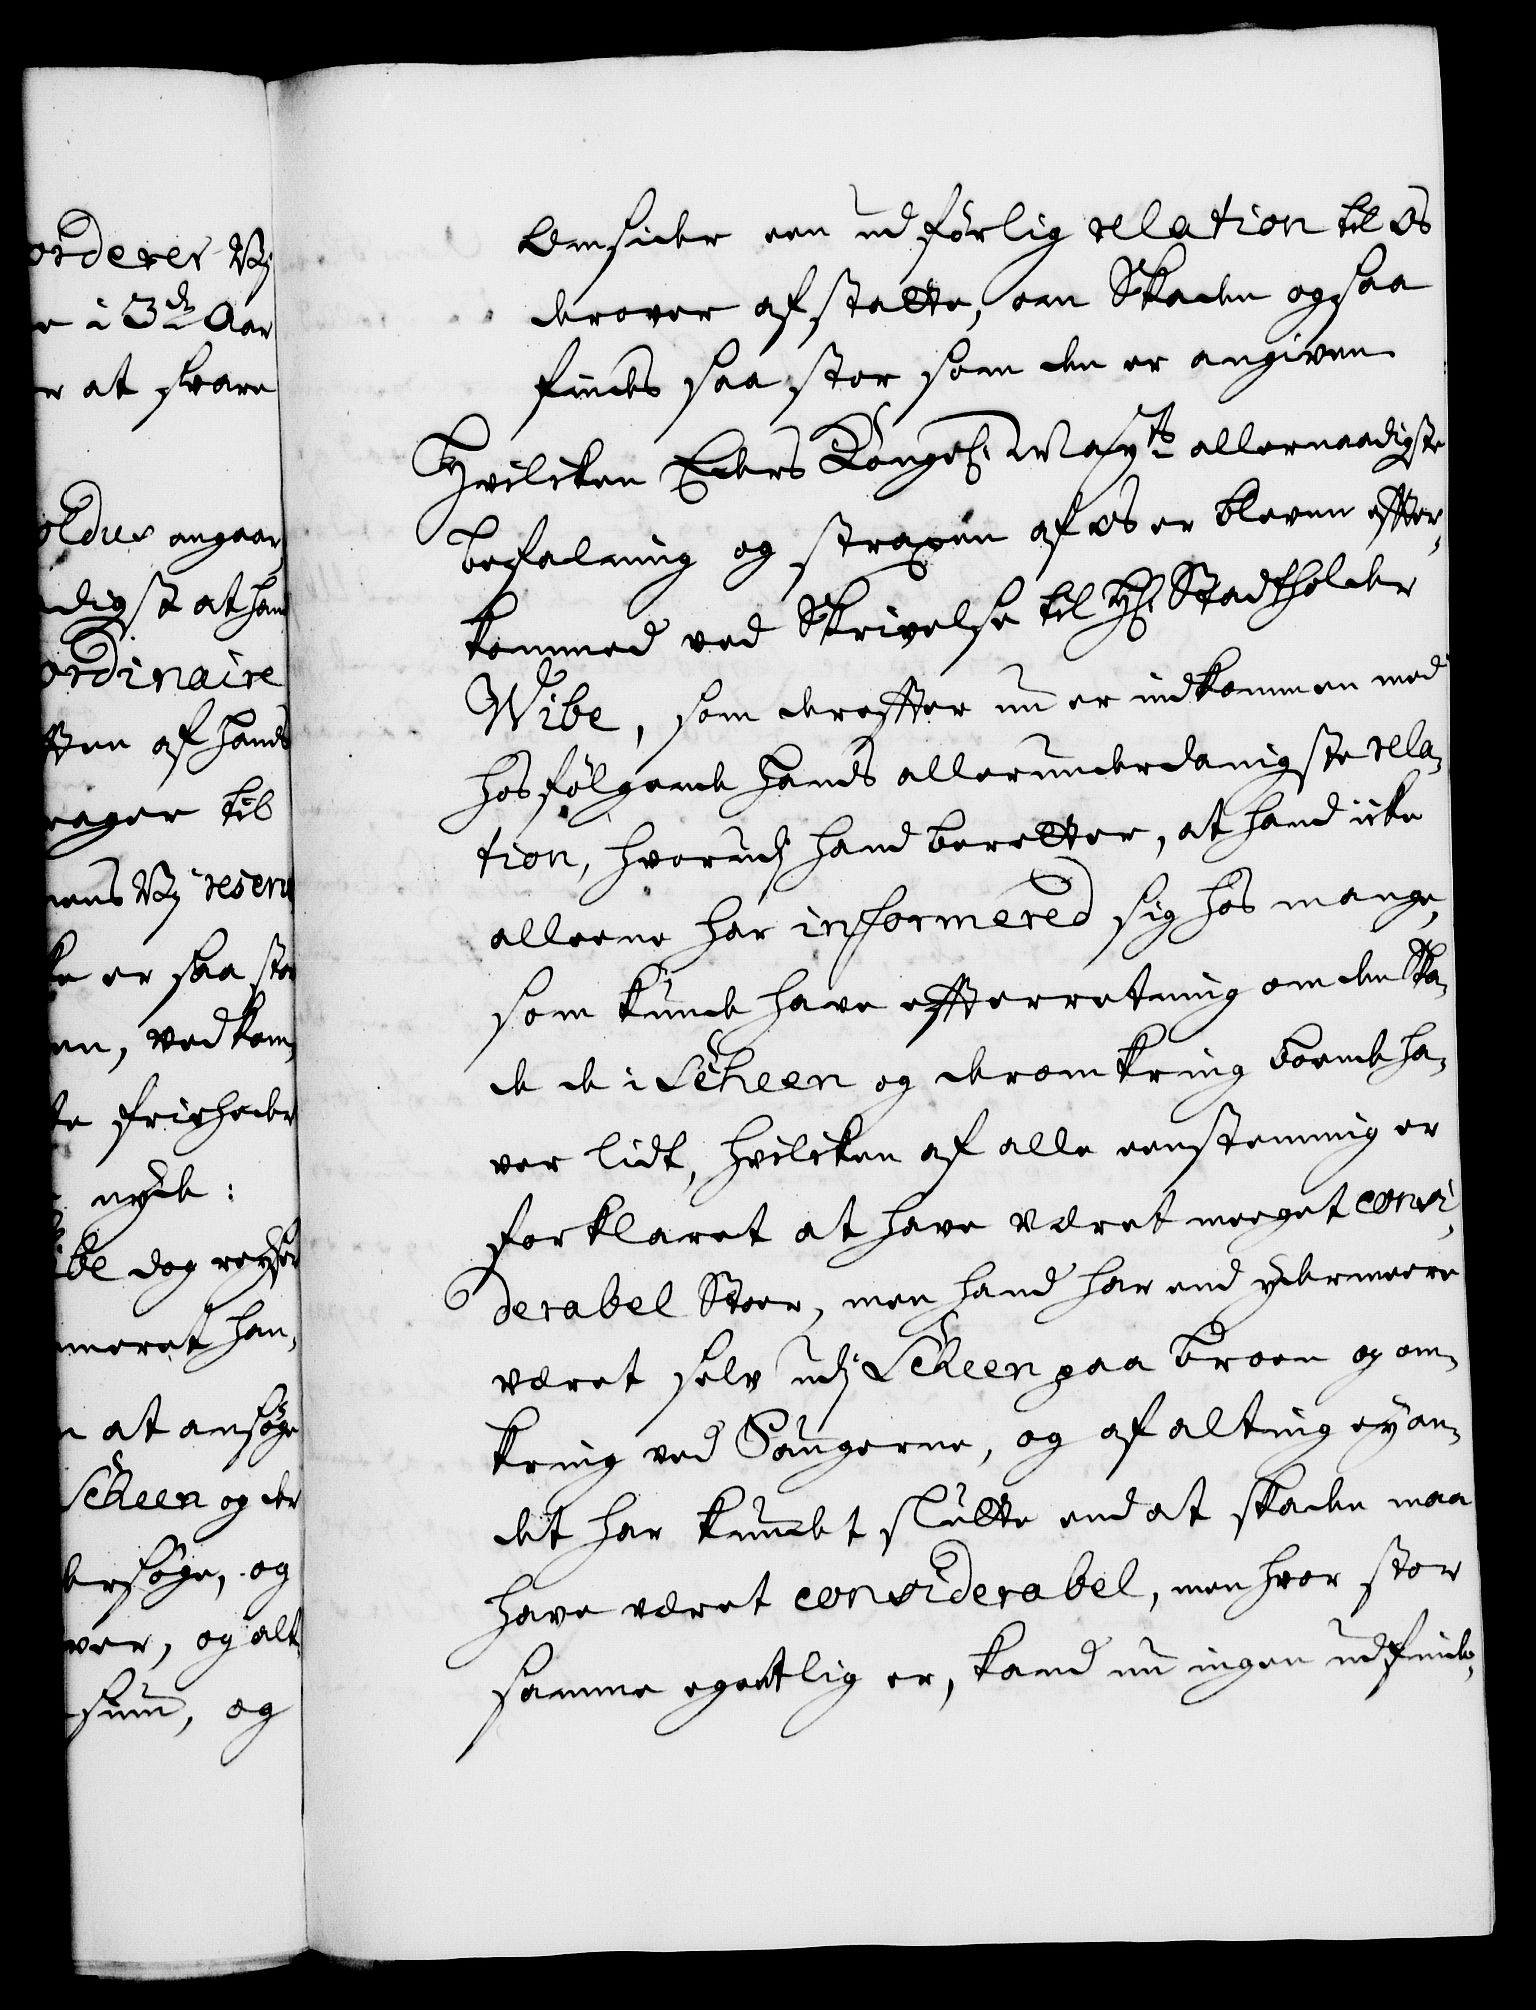 orderes Vj
e i 3de Aar
r at svare
oldus angaar,
digst at hand
ordinaire
ften af hands
rager til
nens Vj reserv
ke er saa stor
en, vedkom,
te friheder
nyde:
ibe dog reyser
meret han,
n at ansøge
Scheen og der
dersøge, og
ver, og alt
sum, og
omsider een udførlig relation til os
derover afstatte, om Skaden ogsaa
findes saa stor som den er angiven.
Hvilcken Eders Kongel: Mayts allernaadigste
befalning og straxen af os er bleven effter,
kommed ved Skrivelse til Hr. Stadtholder
Wibe, som dereffter nu er indkommen med
hosfølgende hands allerunderdanigste rela,
tion, hvorudj hand beretter, at hand icke
alleene har informered sig hos mange,
som kunde have effterretning om den Ska,
de de i Scheen og deromkring boende ha,
ver lidt, hvilcken af alle eenstemmig er
forklaret at have været meeget consi,
derabel Stoer, men hand har end ydermeere
været selv udj Scheen paa Broen og om,
kring ved Saugerne, og af alting ey an,
det har kundet slutte end at skaden maa
have været considerabel, men hvor stor
samme egentlig er, kand nu ingen udfinde,